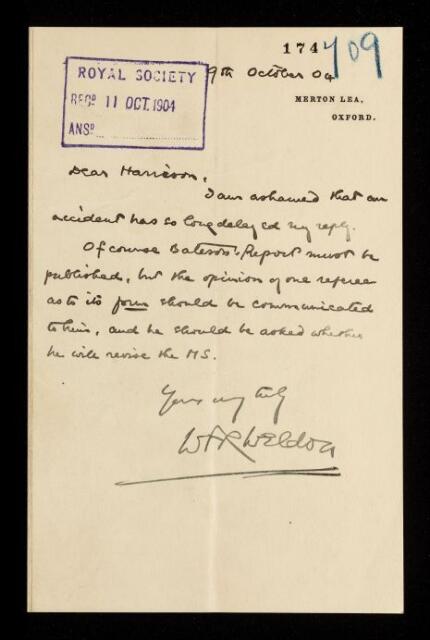 174
409
ROYAL SOCIETY
REC^D. 11 OCT. 1904
ANS^D.
9th October 04
MERTON LEA,
OXFORD.
Dear Harrison,
I am ashamed that an
accident has so long delayed my reply.
Of course Bateson's Report must be
published, but the opinion of one referee
as to its form should be communicated
to him, and he should be asked whether
he will revise the MS.
Yours very truly
WFR Weldon